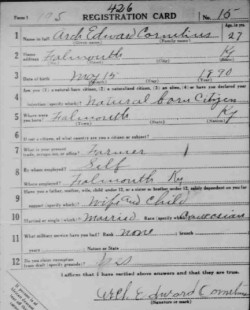 426
Form 1 195 REGISTRATION CARD No. 15
1 Name in full Arch Edward Cornelius 27
(Given name) (Family name)
2 Home address Falmouth Ky
3 Date of birth May 15 1890
4 Are you (1) a natural-born citizen, (2) a naturalized citizen, (3) an alien, (4) or have you declared your
intention (specify which)? Natural born Citizen
5 Where were you born? Falmouth Ky
6 If not a citizen, of what country are you a citizen or subject?
7 What is your present trade, occupation, or office? Farmer 1
8 By whom employed? Self
Where employed? Falmouth Ky
9 Have you a father, mother, wife, child under 12, or a sister or brother under 12, solely dependent on you for
support (specify which)? Wife and Child
10 Married or single (which)? Married Race (specify which)? Caucasian
11 What military service have you had? Rank none ; branch
years ; Nation or State
12 Do you claim exemption from draft (specify grounds)? Yes
I affirm that I have verified above answers and that they are true.
Arch Edward Cornelius
(Signature or mark)